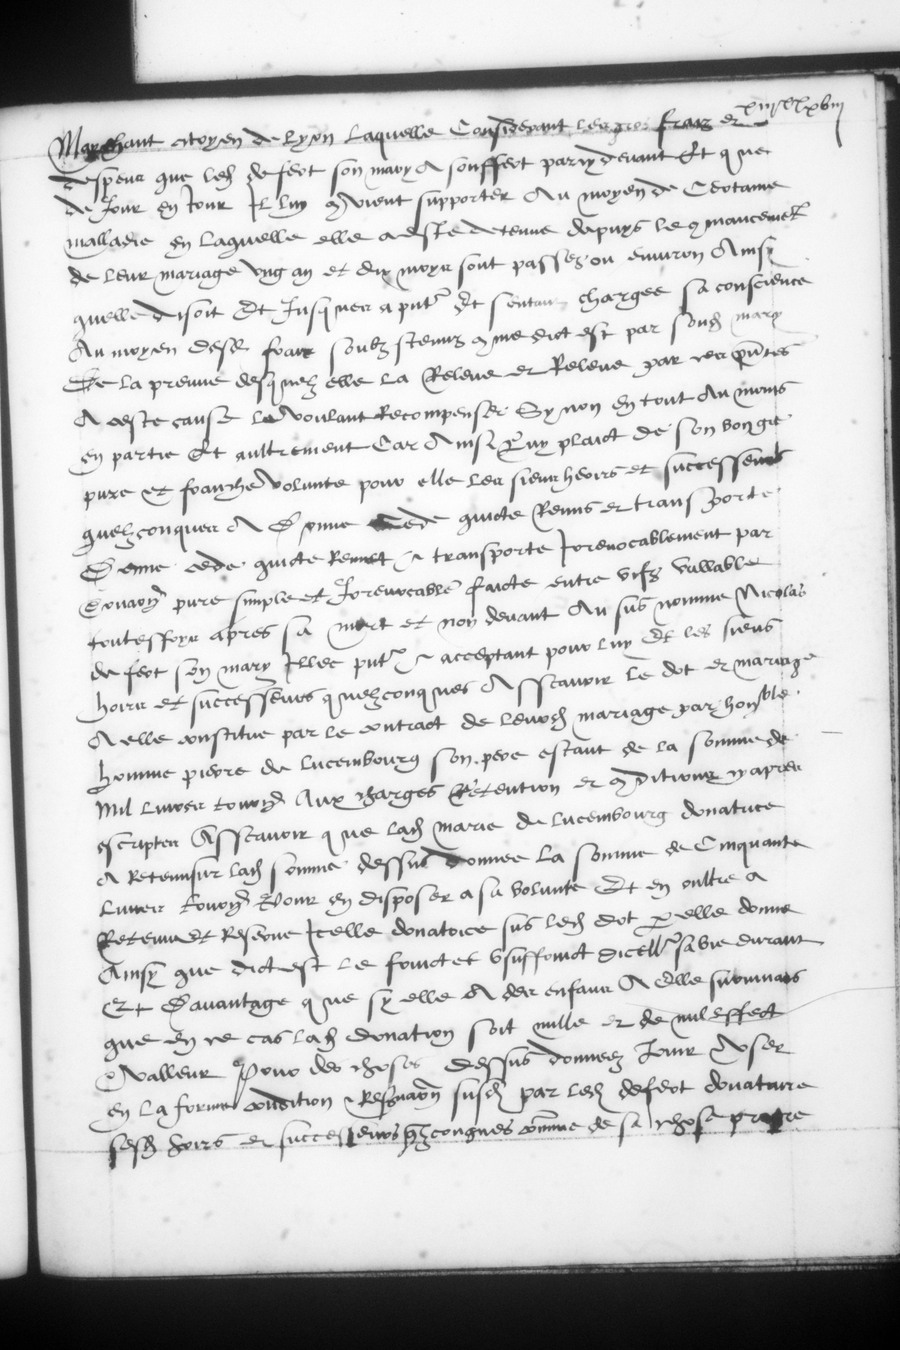 Marchant citoyen de Lyon Laquelle Considerant les gros fraiz et
despens que led de feot son mary A souffeot par cy devant Et que
de Jour en Jour Il luy convient supporter Au moyen de Certaine
malladie en Laquelle elle a este detenue depuys le commancement
de leur mariage ung an et dix moys sont passez ou environ Ainsi
quelle disoit Et Jusques a pnt Et sentant chargee sa conscience
Au moyen desd fraiz soubz stenuz comme dict est par sond mary
De la preuve desquelz elle La Releve et Releve par ces pntes
A ceste cause le voulant Recompenser Sy non en tout Au moins
en partie Et aultrement Car Ainsi luy plaict de son bon gre
pure et franche volunte pour elle les siens heoirs et successeurs
quelzconques A Donne cede quicte Remis et transporte
Donne cede quicte Remect et transporte Irrevocablement par
Donaon pure simple et Irrevocable faicte entre vifz vallable
toutesfoys apres sa mort et non devant Au sus nomme Nicolas
de feot son mary Illec pnt et acceptant pour luy Et les siens
hoirs et successeurs quelzconques Asscavoir Le dot et mariage
A elle constitue par le contract de leurd mariage par honble
homme pierre de Lucembourg son pere estant de la somme de
Mil Livres tourn Aux charges Retention et conditions cy apres
escriptes Asscavoir que lad marie de Lucembourg donatrice
A Retenu sur lad somme dessus donnee La somme de Cinquante
Livres tourn Pour en disposer a sa volunte Et en oultre a
Retenu et Reserve Icelle donatrice sus led dot par elle donne
Ainsy que dict est Le fruict et usuffruict dicelle sa vie durant
Et Davantage que sy elle A des enfans A elle survivans
que en ce cas lad donation soit nulle et de nul effect
et valleur Pour des choses dessus donnees Jouir user
en la forme condition et Reservaon susd par led de feot donataire
sesd hoirs et successeurs qzconques comme de sa chose propre